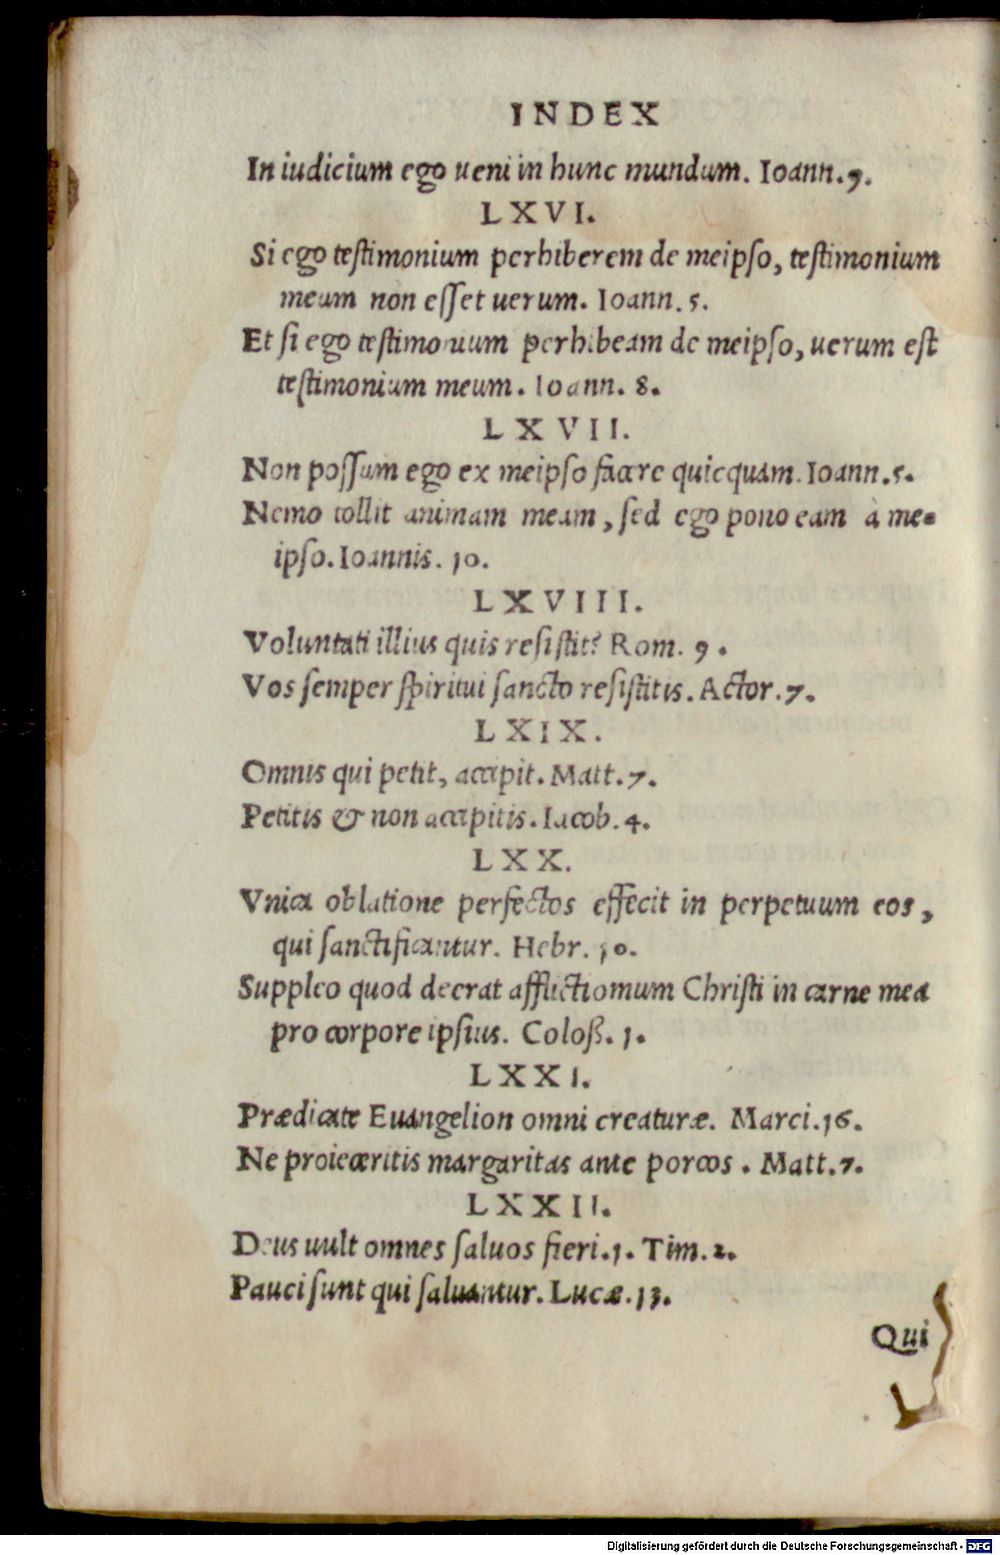 INDEX
In iudicium ego ueni in hunc mundum. Ioann. 9.
LXVI.
Si ego testimonium perhiberem de meipso, testimonium
meum non esset uerum. Ioann. 5.
Et si ego testimonium perhibeam de meipso, uerum est
testimonium meum. Ioann. 8.
LXVII.
Non possum ego ex meipso facere quicquam. Ioann. 5.
Nemo tollit animam meam, sed ego pono eam à me-
ipso. Ioannis. 10.
LXVIII.
Voluntati illius quis resistit? Rom. 9.
Vos semper spiritui sancto resistitis. Actor. 7.
LXIX.
Omnis qui petit, accipit. Matt. 7.
Petitis & non accipitis. Iacob. 4.
LXX.
Vnica oblatione perfectos effecit in perpetuum eos,
qui sanctificantur. Hebr. 10.
Suppleo quod deerat afflictiomum Christi in carne mea
pro corpore ipsius. Coloß. 1.
LXXI.
Prædicate Euangelion omni creaturæ. Marci. 16.
Ne proieceritis margaritas ante porcos. Matt. 7.
LXXII.
Deus uult omnes saluos fieri. 1. Tim. 2.
Pauci sunt qui saluantur. Lucæ. 13.
Qui
Digitalisierung gefördert durch die Deutsche Forschungsgemeinschaft - DFG